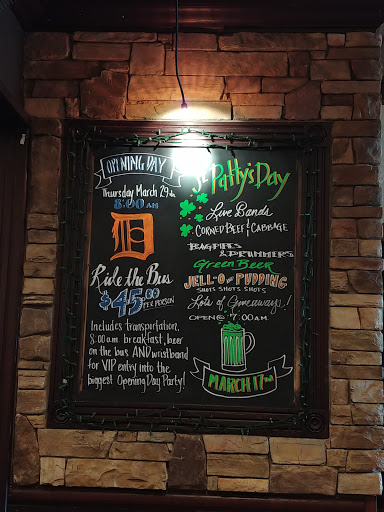 OPENING DAY
Thursday March 29th
8:00 AM
D
Ride the Bus
$45.00
PER PERSON
Includes transportation,
8:00am breakfast, beer
on the bus AND wristband
for VIP entry into the
biggest Opening Day Party!
St Patty's Day
Live Bands
CORNED BEEF & CABBAGE
BAGPIPES
& DRUMMERS
Green Beer
JELL-O and PUDDING
SHOTS SHOTS SHOTS
Lots of Giveaways!
OPEN @ 7:00am
MARCH 17th